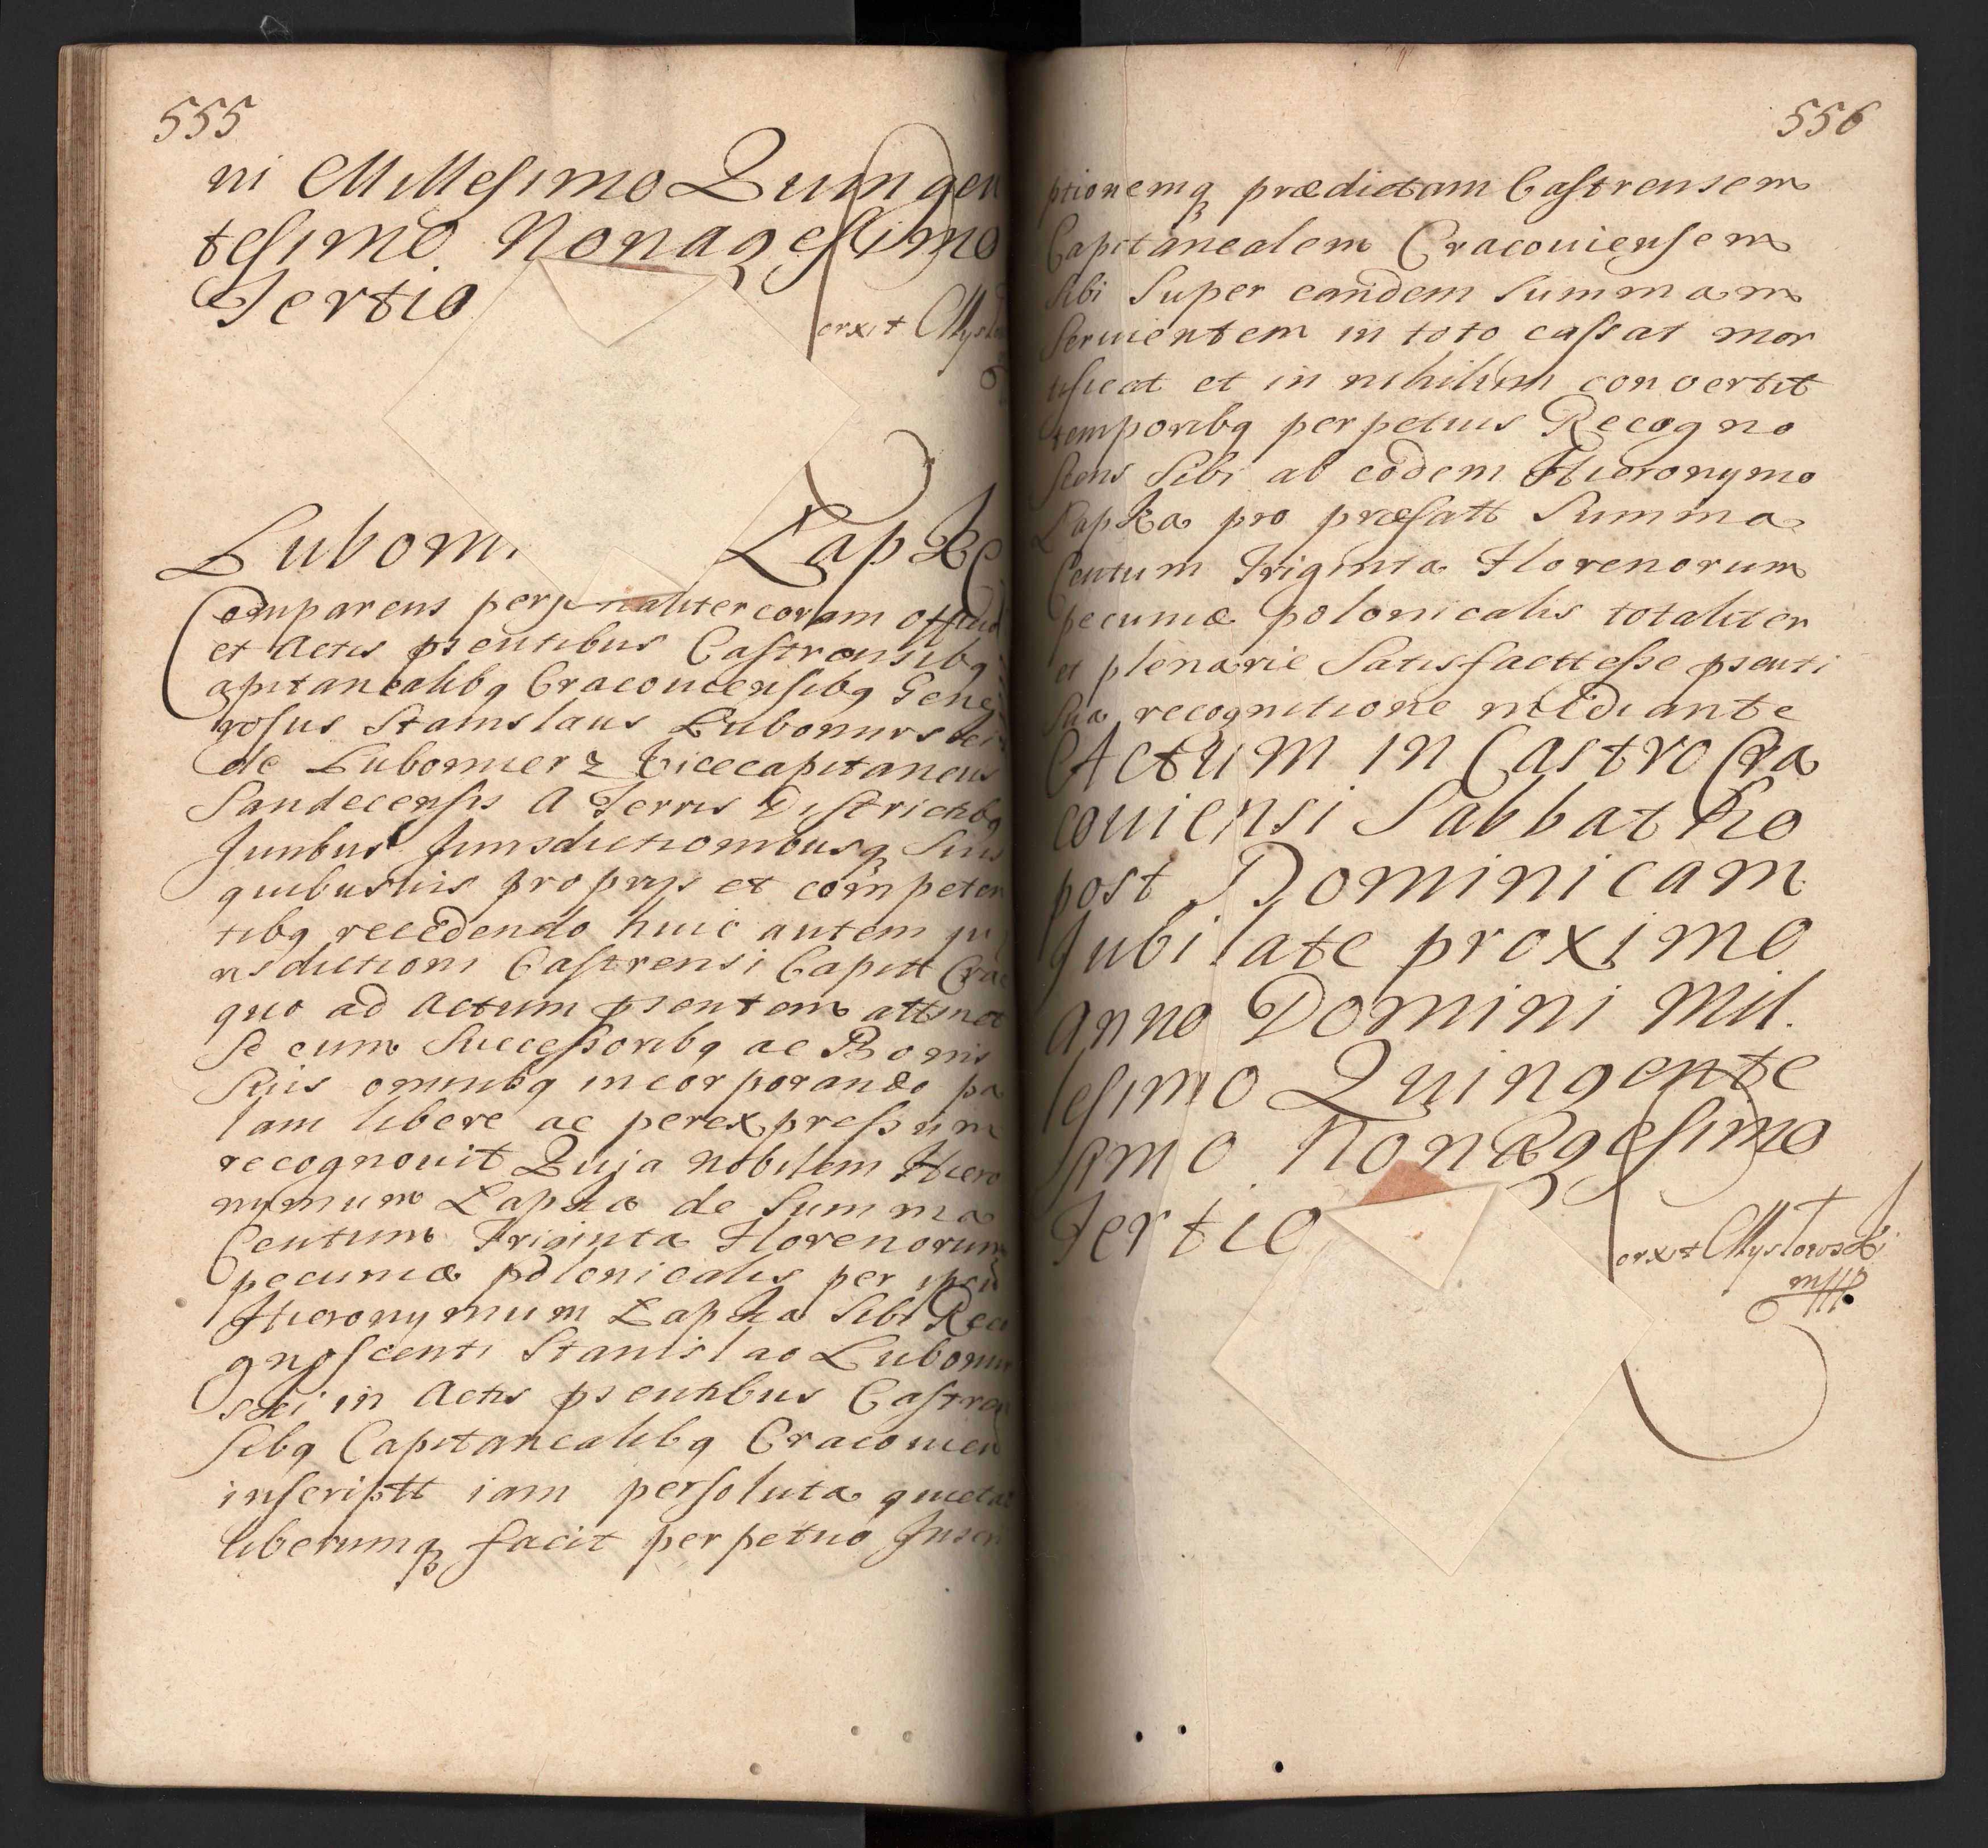 555
ni Millesimo Quingen
tesimo Nonagesimo
Tertio
orxit Mys
Lubomi Lapke
Comparens personaliter coram officio
et Actis psentibus Castrensibq
apitanealibq Cracoviensibq Gene
rosus Stanislaus Lubomirski
de Lubomierz Vicecapitaneus
Sandecensis A Terris Districtibq
Juribus Jurisdictionibusq Suis
quibusuis proprys et competen
tibq recedendo huic autem ju
risdictioni Castrensi Capitt Crac
quo ad Actum psentem attinet
Se cum Successoribq ac Bonis
Suis omnibq incorporando pa
lam libere ac per expressum
recognouit Quia Nobilem Hiero
nymum Lapka de Summa
Centum Triginta Florenorum
pecuniæ polonicalis per ipsu
Hieronymum Lapka Sibi Reco
gnoscenti Stanislao Lubomir
ski in Actis psentibus Castren
sibq Capitanealibq Cracouien
inscriptt iam persoluta quietat
liberumq facit perpetuo Inscri
556
ptionemq prædictam Castrensem
Capitanealem Cracouiensem
Sibi Super eandem Summam
Seruientem in toto cassat mor
tificat et in nihilum convertit
temporibq perpetuis Recogno
scens Sibi ab eodem Hieronymo
Lapka pro præfatt Summa
Centum Triginta Florenorum
pecuniæ polonicalis totaliter
et plenarie Satisfactt esse psenti
Sua recognitione mediante
Actum in Castro Cra
couiensi Sabbatho
post Dominicam
Jubilate proximo
Anno Domini Mil.
lesimo Quingente
simo Nonagesimo
Tertio
orxit Mystowski
mpp